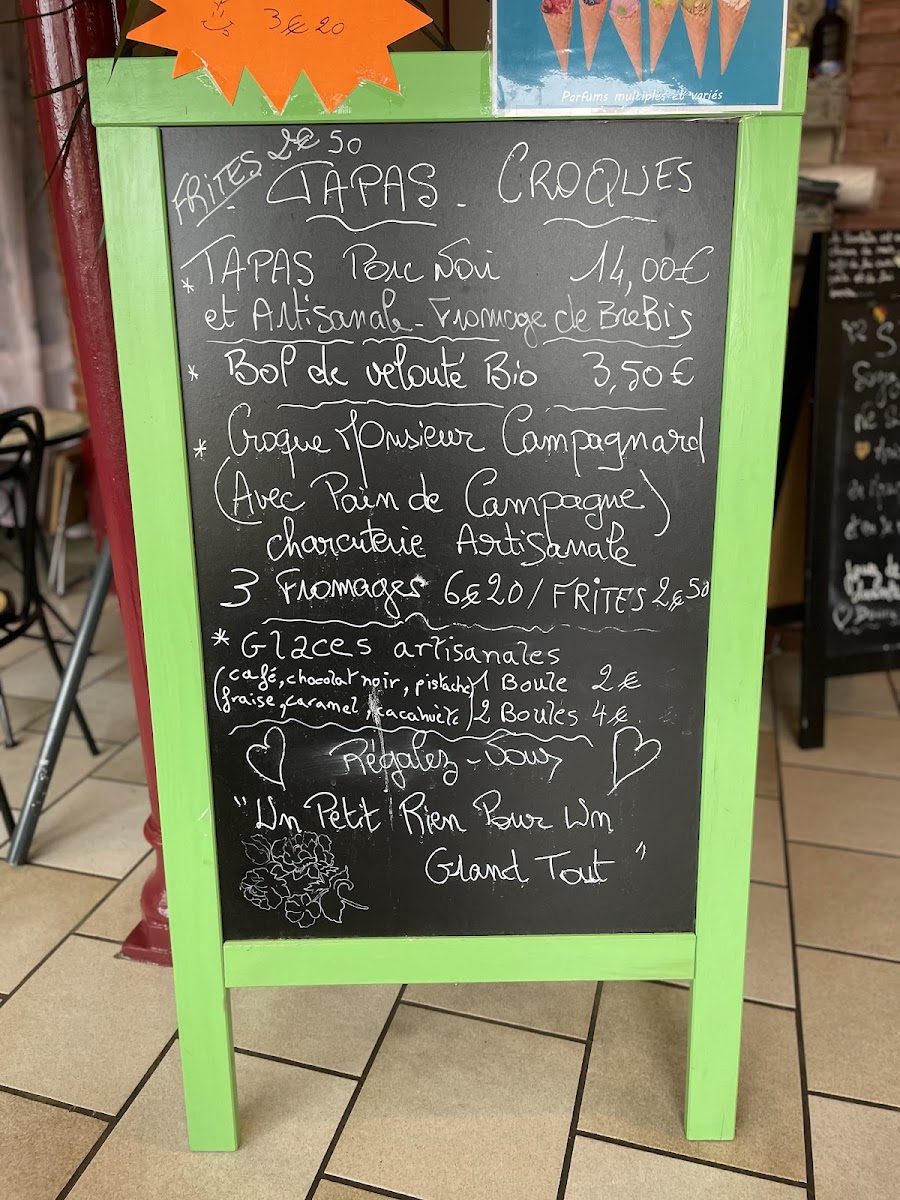 3€20
Parfums multiples et variés
FRITES 2€50
TAPAS - CROQUES
* TAPAS Porc Noir 14,00€
et Artisanale - Fromage de BreBis
* Bol de velouté Bio 3,50€
* Croque Monsieur Campagnard
(Avec Pain de Campagne)
charcuterie Artisanale
3 Fromages 6€20 / FRITES 2€50
* Glaces artisanales
(café, chocolat noir, pistache) 1 Boule 2€
(fraise, caramel, cacahuète) 2 Boules 4€.
Régalez-Vous
"Un Petit Rien Pour Un
Grand Tout"